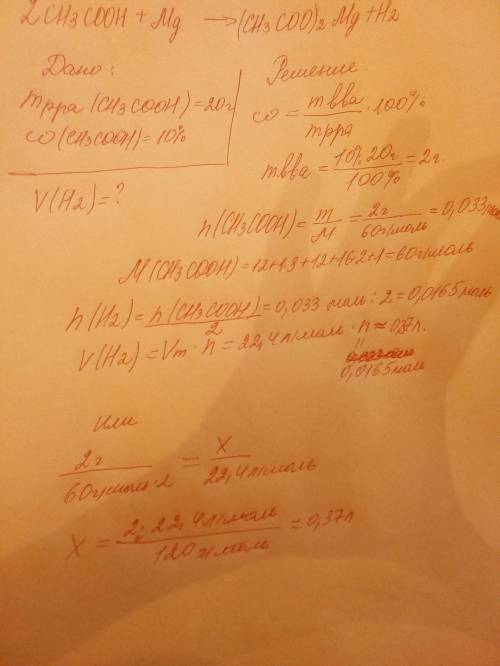 2CH3COOH + Mg → (CH3COO)2Mg + H2
Дано:
mрра (CH3COOH) = 20г
ω (CH3COOH) = 10%
V(H2) = ?
Решение
ω = mвва / mрра · 100%
mвва = 10% · 20г / 100% = 2г
n(CH3COOH) = m / M = 2г / 60г/моль = 0,033моль
M(CH3COOH) = 12+1·3+12+16·2+1 = 60г/моль
n(H2) = n(CH3COOH) / 2 = 0,033 моль : 2 = 0,0165 моль
V(H2) = Vm · n = 22,4 л/моль · n ≈ 0,37л.
0,0165 моль
Или
2г / 60г/моль·2 = X / 22,4 л/моль
X = 2г · 22,4 л/моль / 120 г/моль ≈ 0,37л